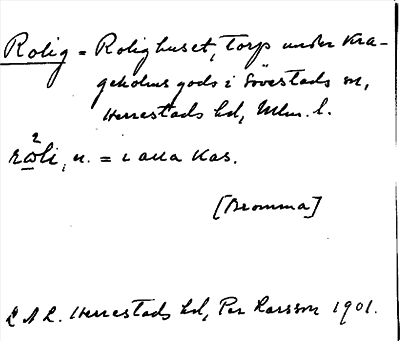 Rolig = Rolighuset, Torp under Kra-
geholms gods i Sövestads sn,
Herrestads hd, Mlm. l.
2
rωli, n. = i alla Kas.
[Bromma]
L A L. Herrestads hd, Per Larsson 1901.